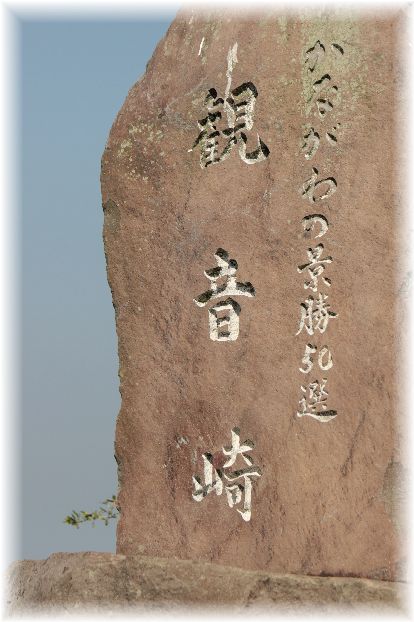 かながわの景勝50選
観音崎